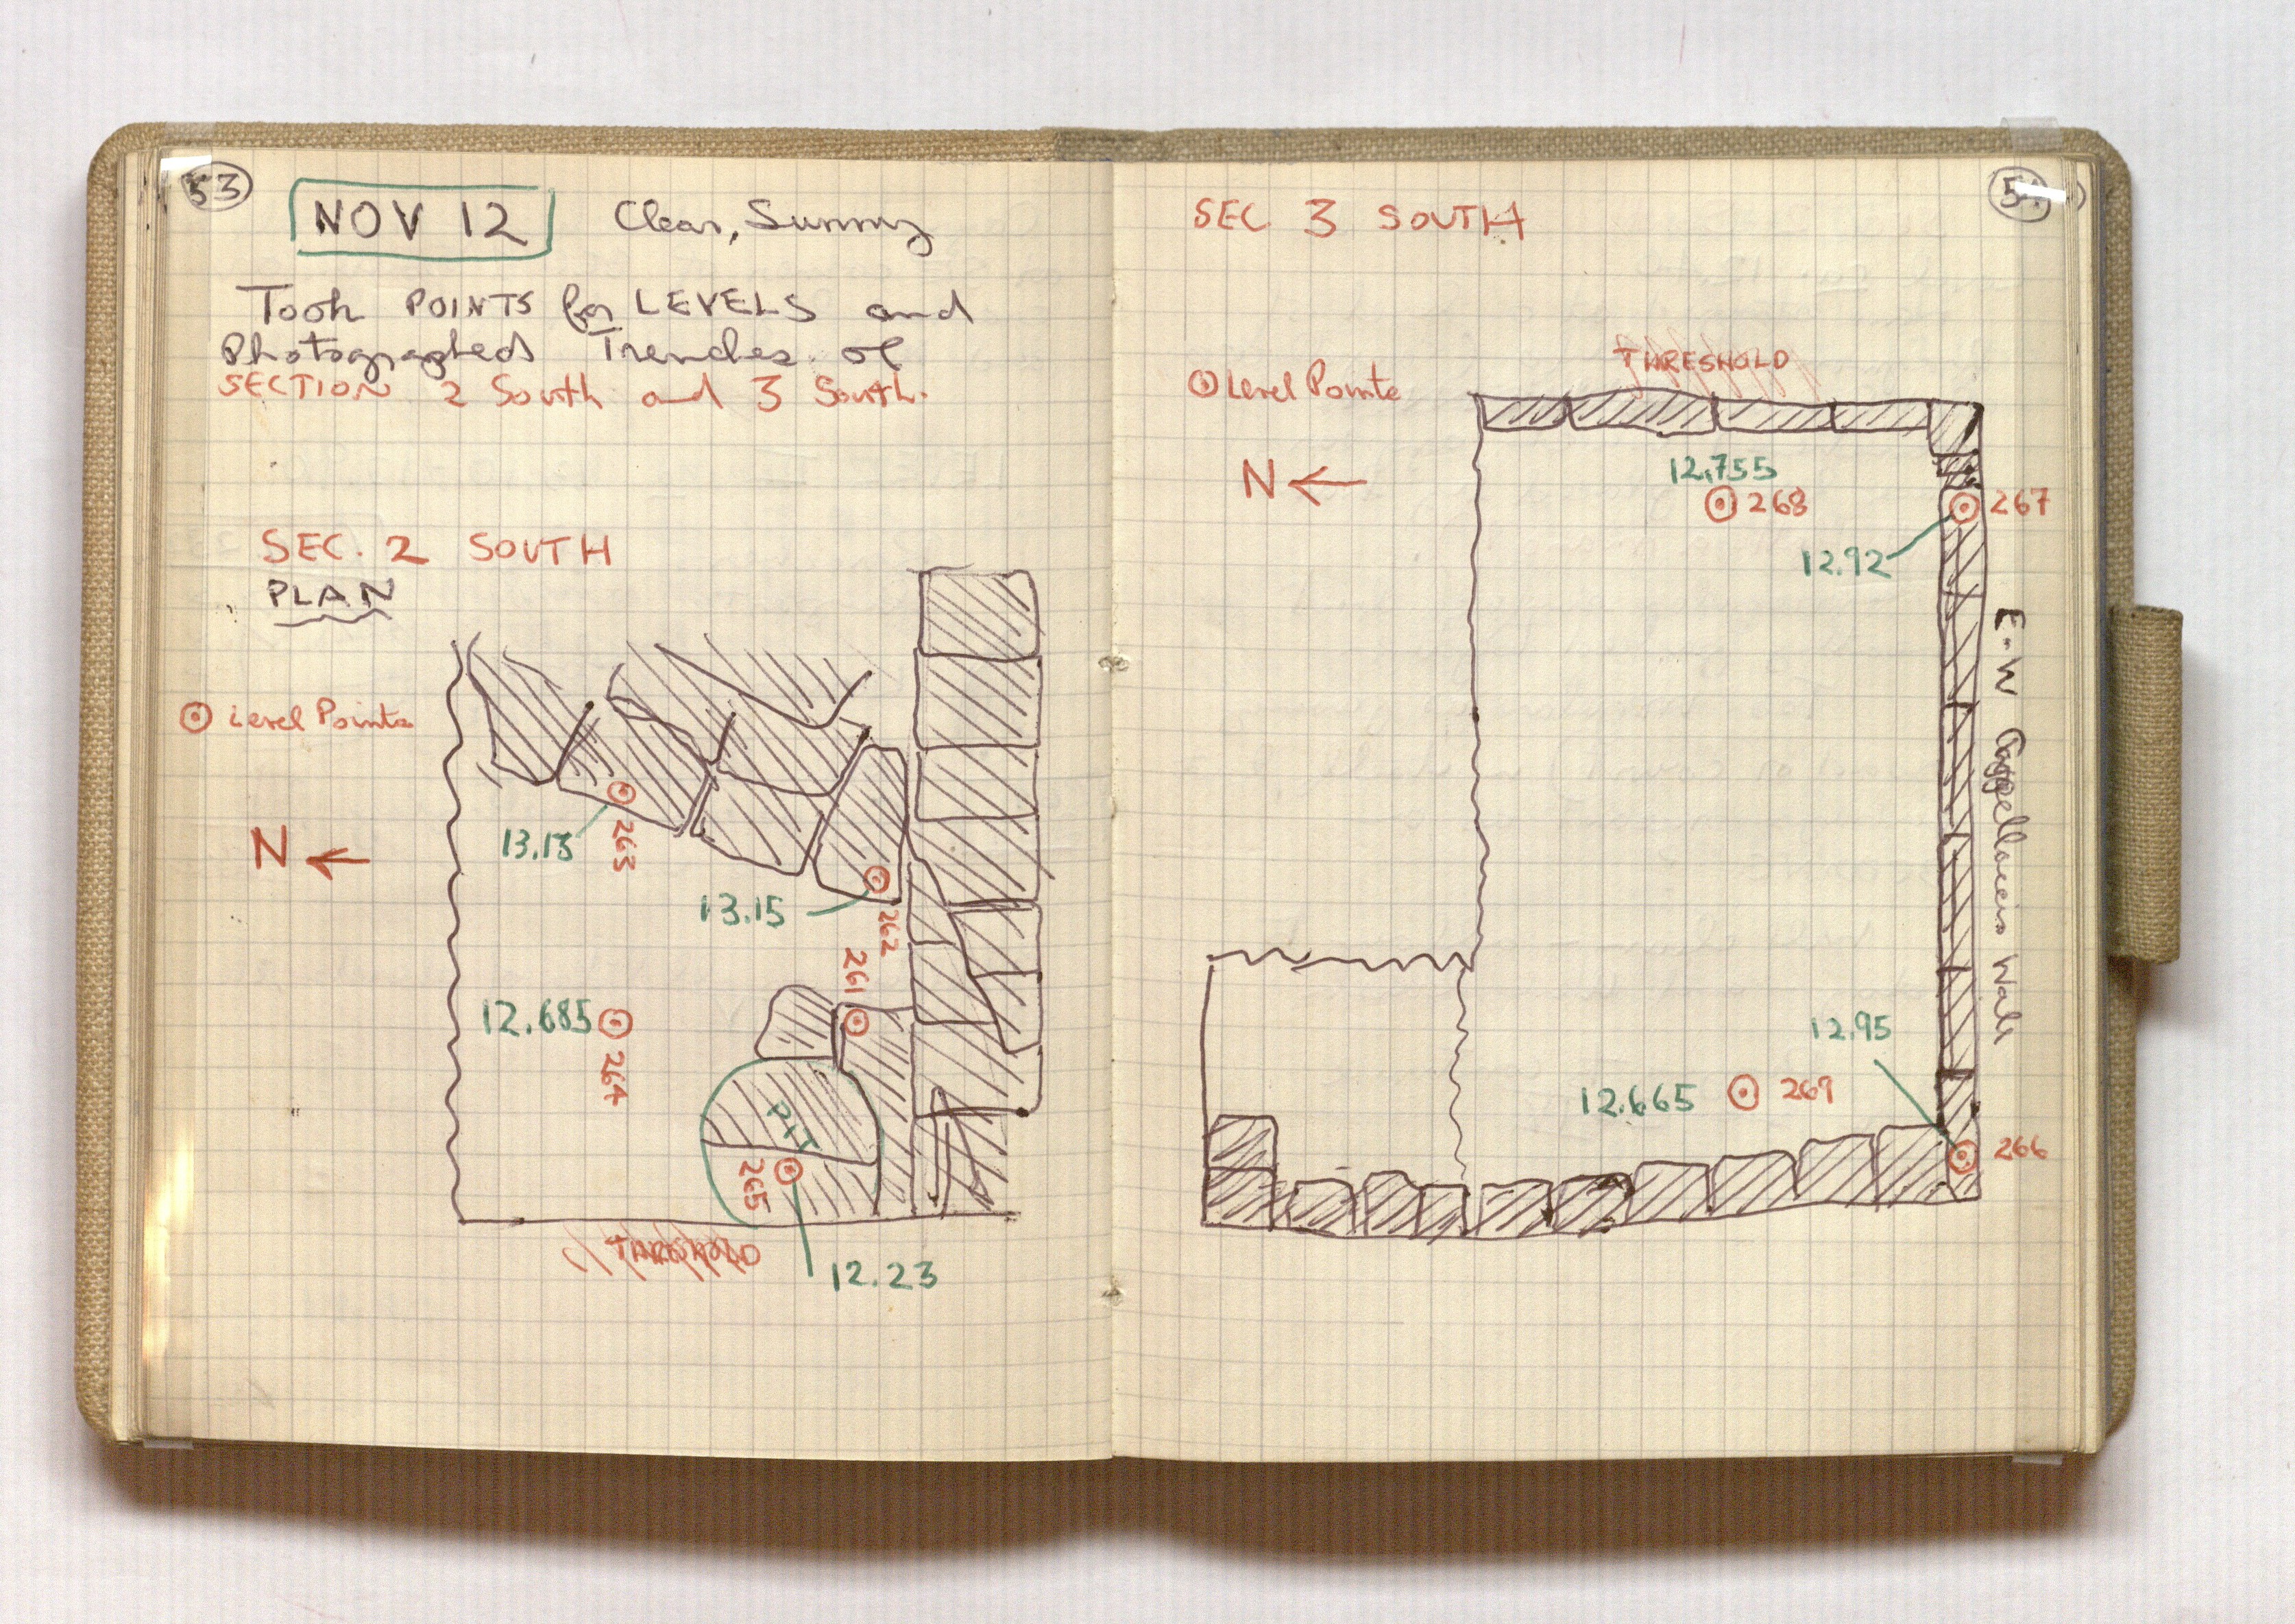 53
NOV 12
Clear, Sunny
Took POINTS for LEVELS and
Photographed Trenches of
SECTION 2 South and 3 South.
SEC. 2 SOUTH
PLAN
Level Points
N
13.15
262
263
261
12.685
264
PIT
265
THRESHOLD
12.23
SEC. 3 SOUTH
THRESHOLD
Level Points
N
12.755
268
267
12.92
E-W Wall
12.95
12.665
269
266